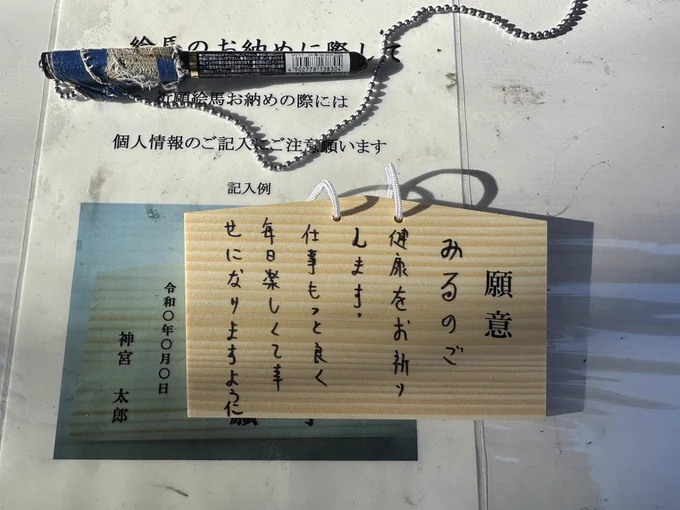 絵馬のお納めに際して
祈願絵馬お納めの際には
個人情報のご記入にご注意願います
記入例
願意
みるのご
健康をお祈り
します。
仕事もっと良く
毎日楽しくて幸
せになりますように
令和〇年〇月〇日
神宮 太郎